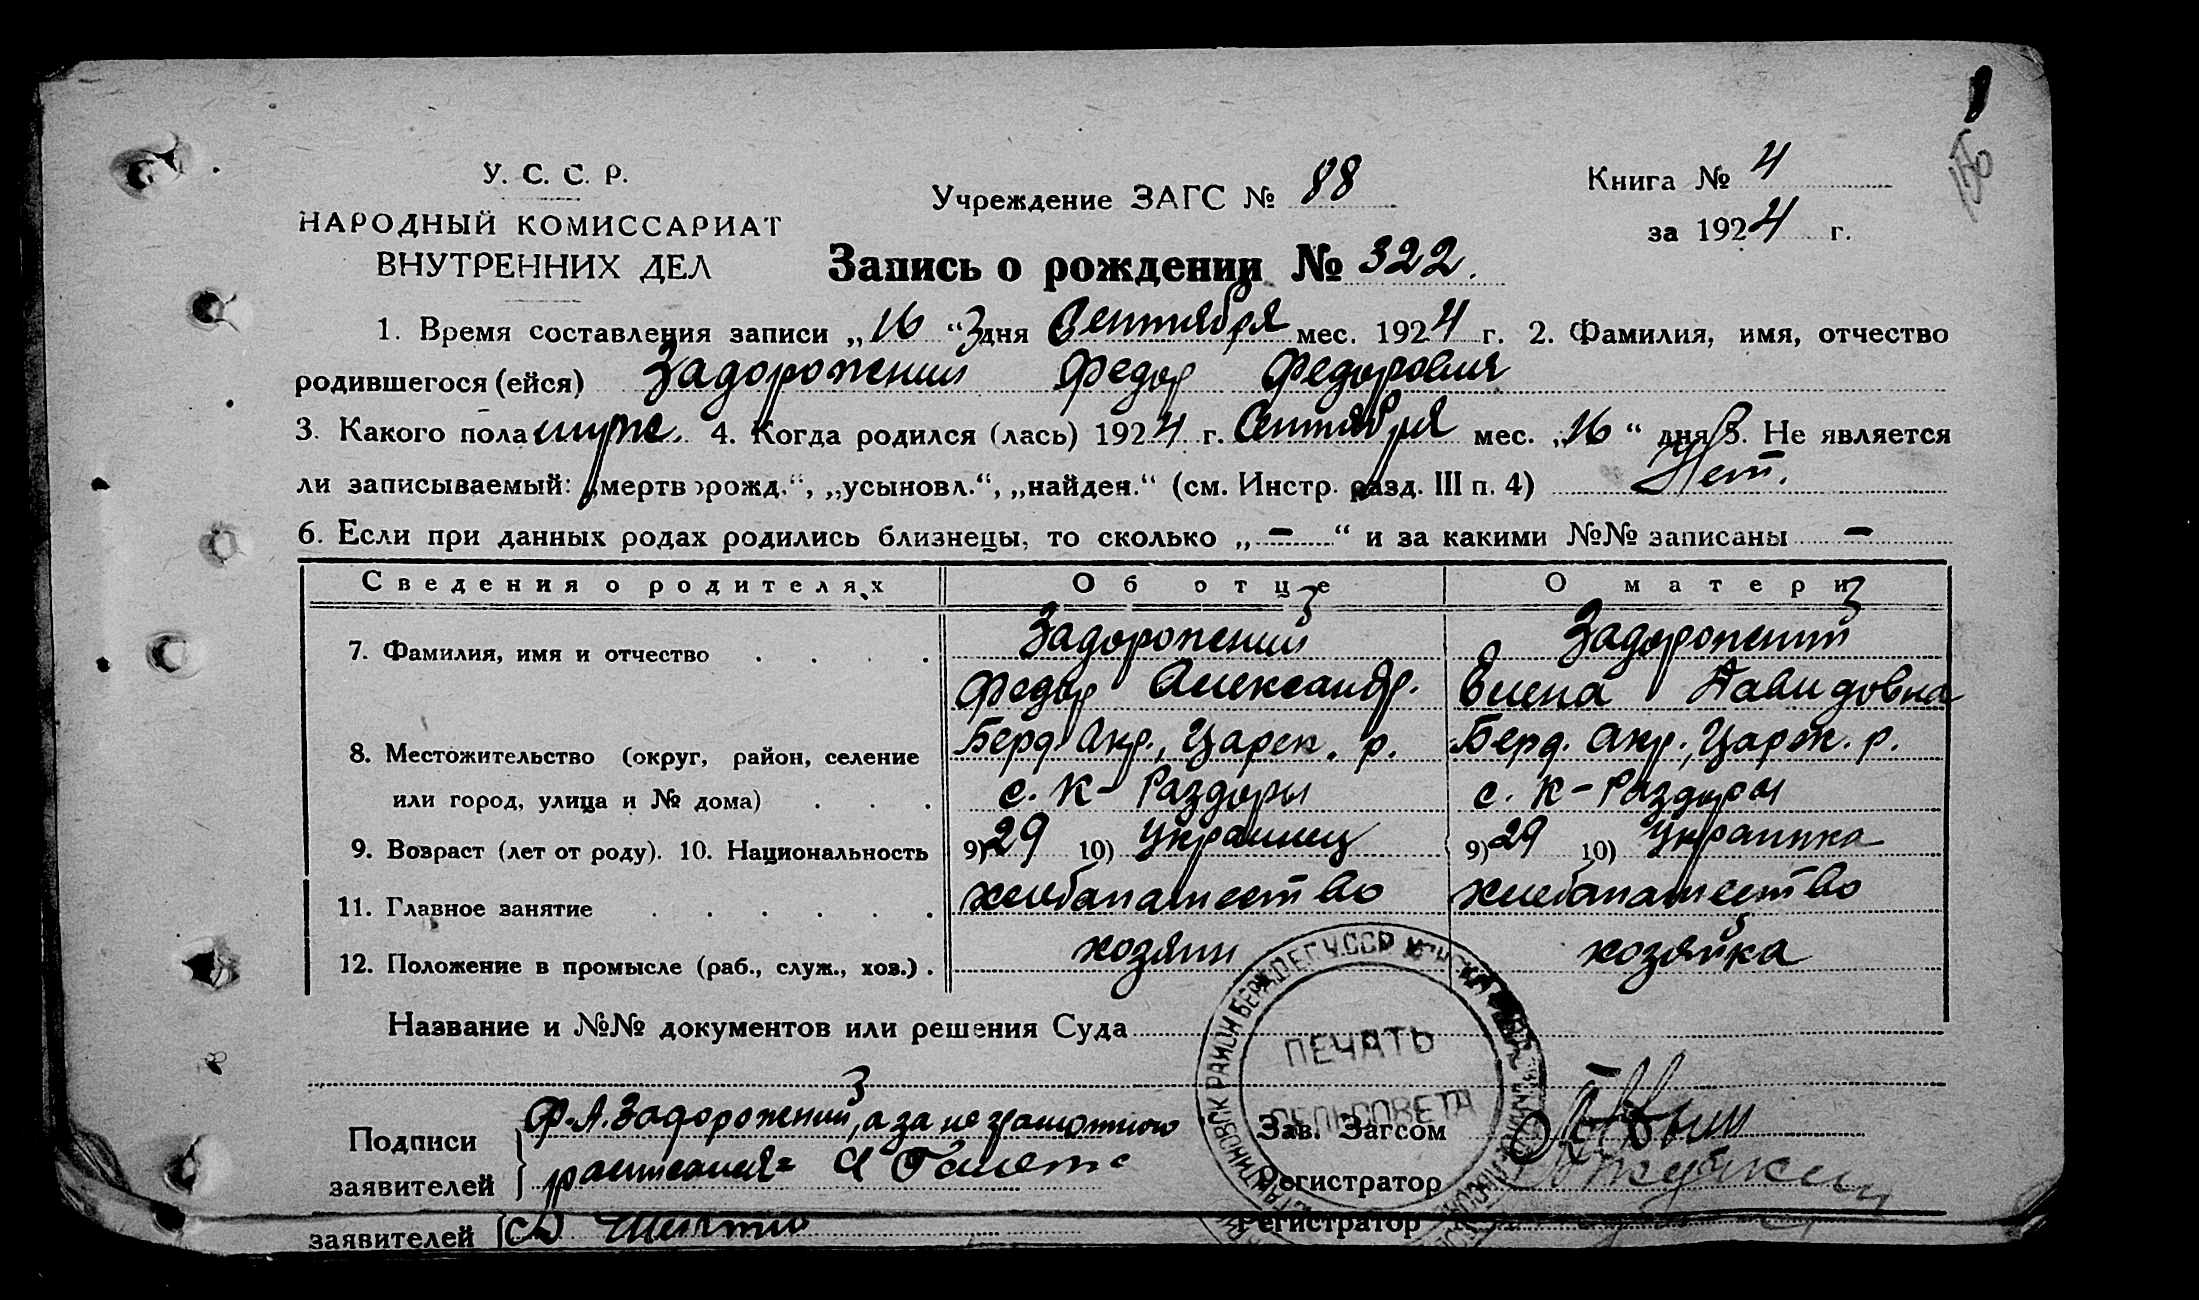 У. С. С. Р.
НАРОДНЫЙ КОМИССАРИАТ
ВНУТРЕННИХ ДЕЛ
Учреждение ЗАГС № 88
Книга № 4
за 1924 г.
Запись о рождении № 322.
1. Время составления записи „16“ дня Сентября мес. 1924 г. 2. Фамилия, имя, отчество
родившегося (ейся) Задорожний Федор Федорович
3. Какого пола муж. 4. Когда родился (лась) 1924 г. Сентября мес. „16“ дня 5. Не является
ли записываемый: „мертворожд.“, „усыновл.“, „найден.“ (см. Инстр. разд. III п. 4) Нет.
6. Если при данных родах родились близнецы, то сколько „ – “ и за какими №№ записаны –
Сведения о родителях Об отце О матери
7. Фамилия, имя и отчество . . . . Задорожний Задорожний
Федор Александр. Елена Давидовна
8. Местожительство (округ, район, селение Берд. Окр., Царек. р. Берд. Окр., Царек. р.
или город, улица и № дома) . . . с. К-Раздоры с. К-Раздоры
9. Возраст (лет от роду). 10. Национальность 9) 29 10) Украинец 9) 29 10) Украинка
11. Главное занятие . . . . . . хлебопашество хлебопашество
12. Положение в промысле (раб., служ., хоз.) . хозяин хозяйка
Название и №№ документов или решения Суда
ПЕЧАТЬ
СЕЛЬСОВЕТА
Подписи
заявителей
Ф. А. Задорожний, а за неграмотного
Зав. Загсом
Регистратор
заявителей
Регистратор